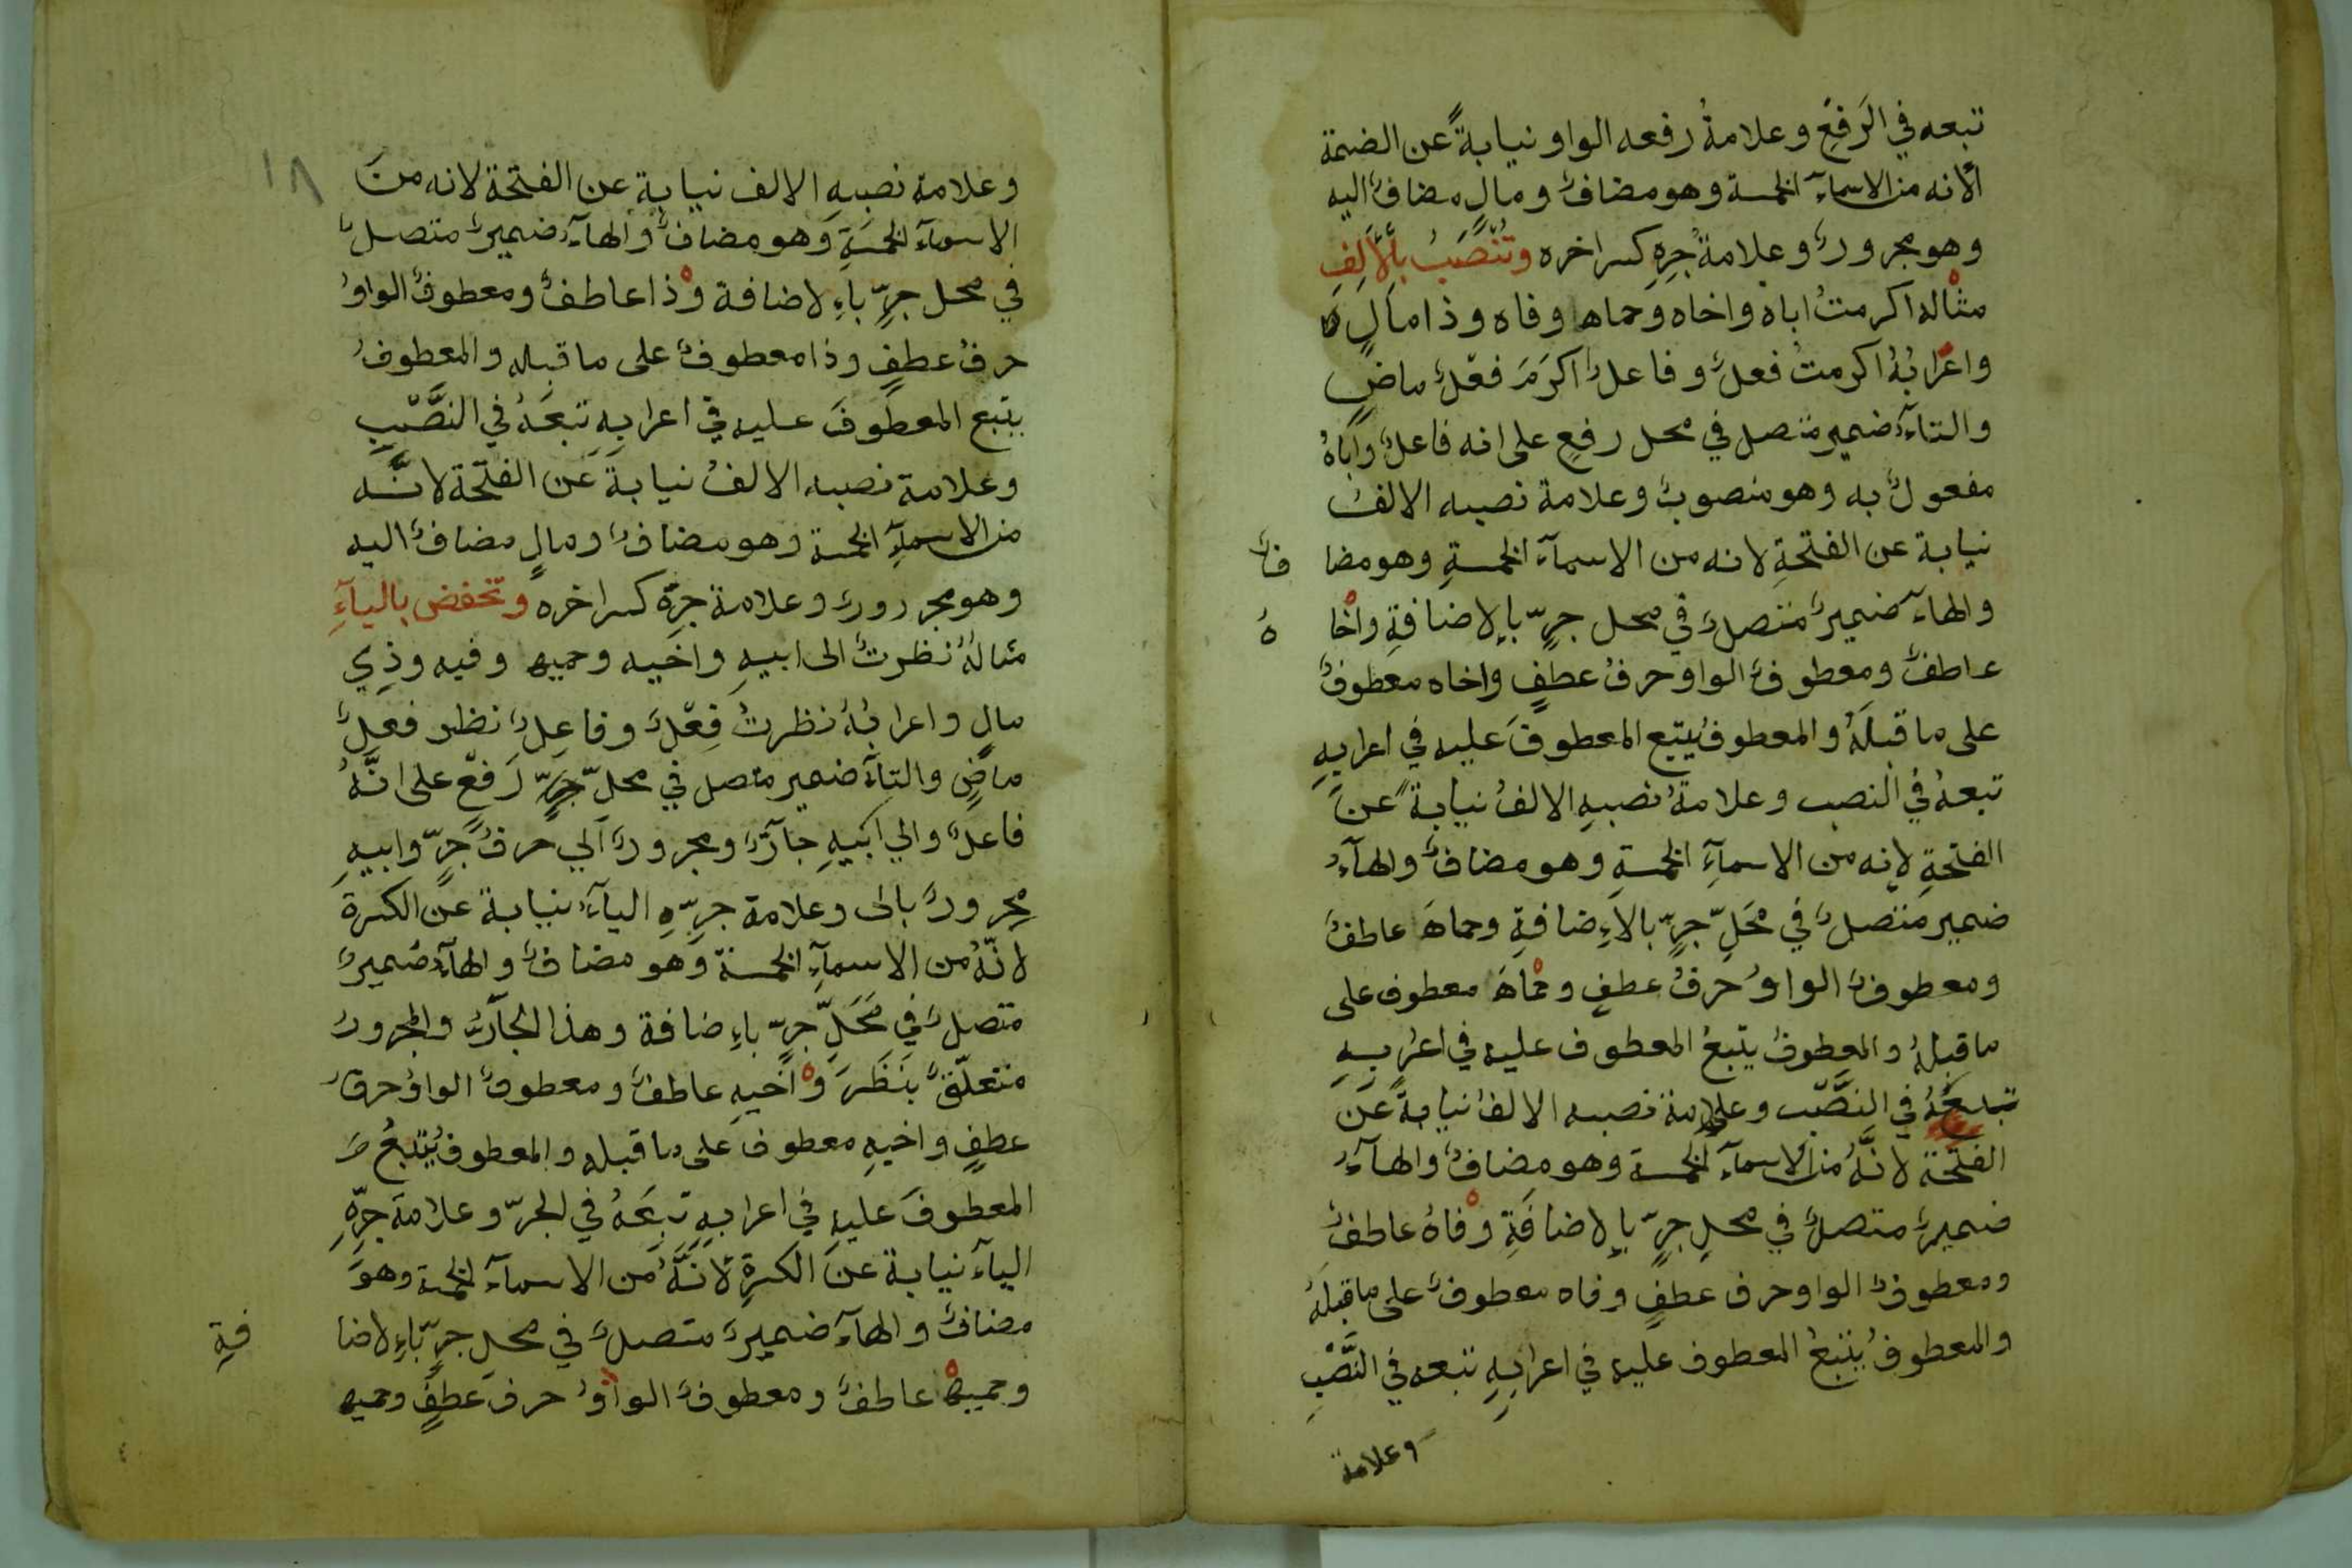 تبعه في الرَفعِ وعلامةُ رفعه الواو نيابةً عن الضمة
لأنه من الاسماءِ الخمسة وهو مضافٌ ومالٍ مضافٌ اليه
وهو مجرورٌ وعلامةُ جرِهِ كسر اخره وتُنْصَبُ بالْأَلِفِ
مثاله اكرمتُ اباه واخاه وحماها وفاه وذا مالٍ
واعرابُهُ اكرمتُ فعلٌ وفاعلٌ اكرَمَ فعْلٌ ماضٍ
والتآءُ ضمير متصل في محل رفعٍ على انه فاعلٌ واَباهُ
مفعولٌ به وهو منصوبٌ وعلامة نصبه الالفُ
نيابة عن الفتحةِ لانه من الاسمآء الخمسةِ وهو مضافٌ
والهآءُ ضميرٌ متصلٌ في محل جرٍّ بالاضافةِ واخاهُ
عاطفٌ ومعطوفٌ الواو حرفُ عطفٍ واخاه معطوفٌ
على ما قبلَهُ والمعطوفُ يتبع المعطوفَ عليه في اعرابِهِ
تبعهُ في النصب وعلامةُ نصبهِ الالفُ نيابةً عن
الفتحةِ لانه من الاسمآءِ الخمسةِ وهو مضافٌ والهآءُ
ضمير متصلٌ في مَحَلِّ جرٍّ بالاِضافةِ وحماهَا عاطفٌ
ومعطوفٌ الواوُ حرفُ عطفٍ وحماهَا معطوف على
ما قبلهُ والمعطوفُ يتبعُ المعطوف عليه في اعرابِهِ
تبعَهُ في النَصْب وعلامة نصبه الالفُ نيابةً عن
الفتحة لانَّهُ من الاسمآءِ الخمسة وهو مضافٌ والهآءُ
ضميرٌ متصلٌ في محلِ جرٍّ بالاضافَةِ وفاهُ عاطفٌ
ومعطوفٌ الواو حرف عطفٍ وفاه معطوفٌ على ما قبلهُ
والمعطوفُ يتبعُ المعطوف عليه في اعرابِهِ تبعه في النَّصْبِ
وعلامة
١٨
وعلامة نصبهِ الالف نيابة عن الفتحة لانه منَ
الاسمآءِ الخمسَةِ وَهو مضافٌ والهآءُ ضميرٌ متصلٌ
في محل جرٍّ باءِلاضافة وذا عاطفٌ ومعطوفٌ الواوُ
حرفُ عطفٍ وذا معطوفٌ على ما قبله والمعطوفُ
يتبع المعطوفَ عليه في اعرابِهِ تبعَهُ في النَّصْبِ
وعلامة نصبه الالفُ نيابةً عَن الفتحة لانَّه
من الاسمآءِ الخمسة وهو مضافٌ ومالٍ مضافٌ اليه
وهو مجرورٌ وعلامة جرِّه كسر اخره وتخفض باليآءِ
مثالهُ نظرتُ الى ابيهِ واخيه وحميها وفيه وذِي
مالٍ واعرابُهُ نظرتُ فِعْلٌ وفاعِلٌ نظر فعلٌ
ماضٍ والتآءُ ضمير متصل في محلِّ جَرٍّ رَفعٍ على انَّهُ
فاعلٌ والي اَبيهِ جآرٌّ ومجرورٌ اَلي حرفُ جَرٍّ وابيهِ
مجرورٌ بالى وعلامة جرِّهِ اليآءُ نيابة عن الكسرة
لانّهُ من الاسمآءِ الخمسة وَهو مضافٌ والهآءُ ضميرٌ
متصلٌ في مَحَلِّ جرٍّ باءِضافة وهذا الجآرُّ والمجرورُ
متعلّقٌ بنَظَرَ واَخيهِ عاطفٌ ومعطوفٌ الواوُ حرفُ
عطفٍ واخيهِ معطوف على ما قبله والمعطوفُ يَتبعُ
المعطوفَ عليهِ في اعرابهِ تبِعَهُ في الجرّ وعلامَة جرِّهِ
اليآءُ نيابة عن الكسرةِ لاَنَّهُ من الاسمآءِ الخمسة وهوَ
مضافٌ والهآءُ ضميرٌ متصلٌ في محلِ جرٍّ باءِلاضافةِ
وحميها عاطفٌ ومعطوفٌ الواوُ حرف عَطفٍ وحميها